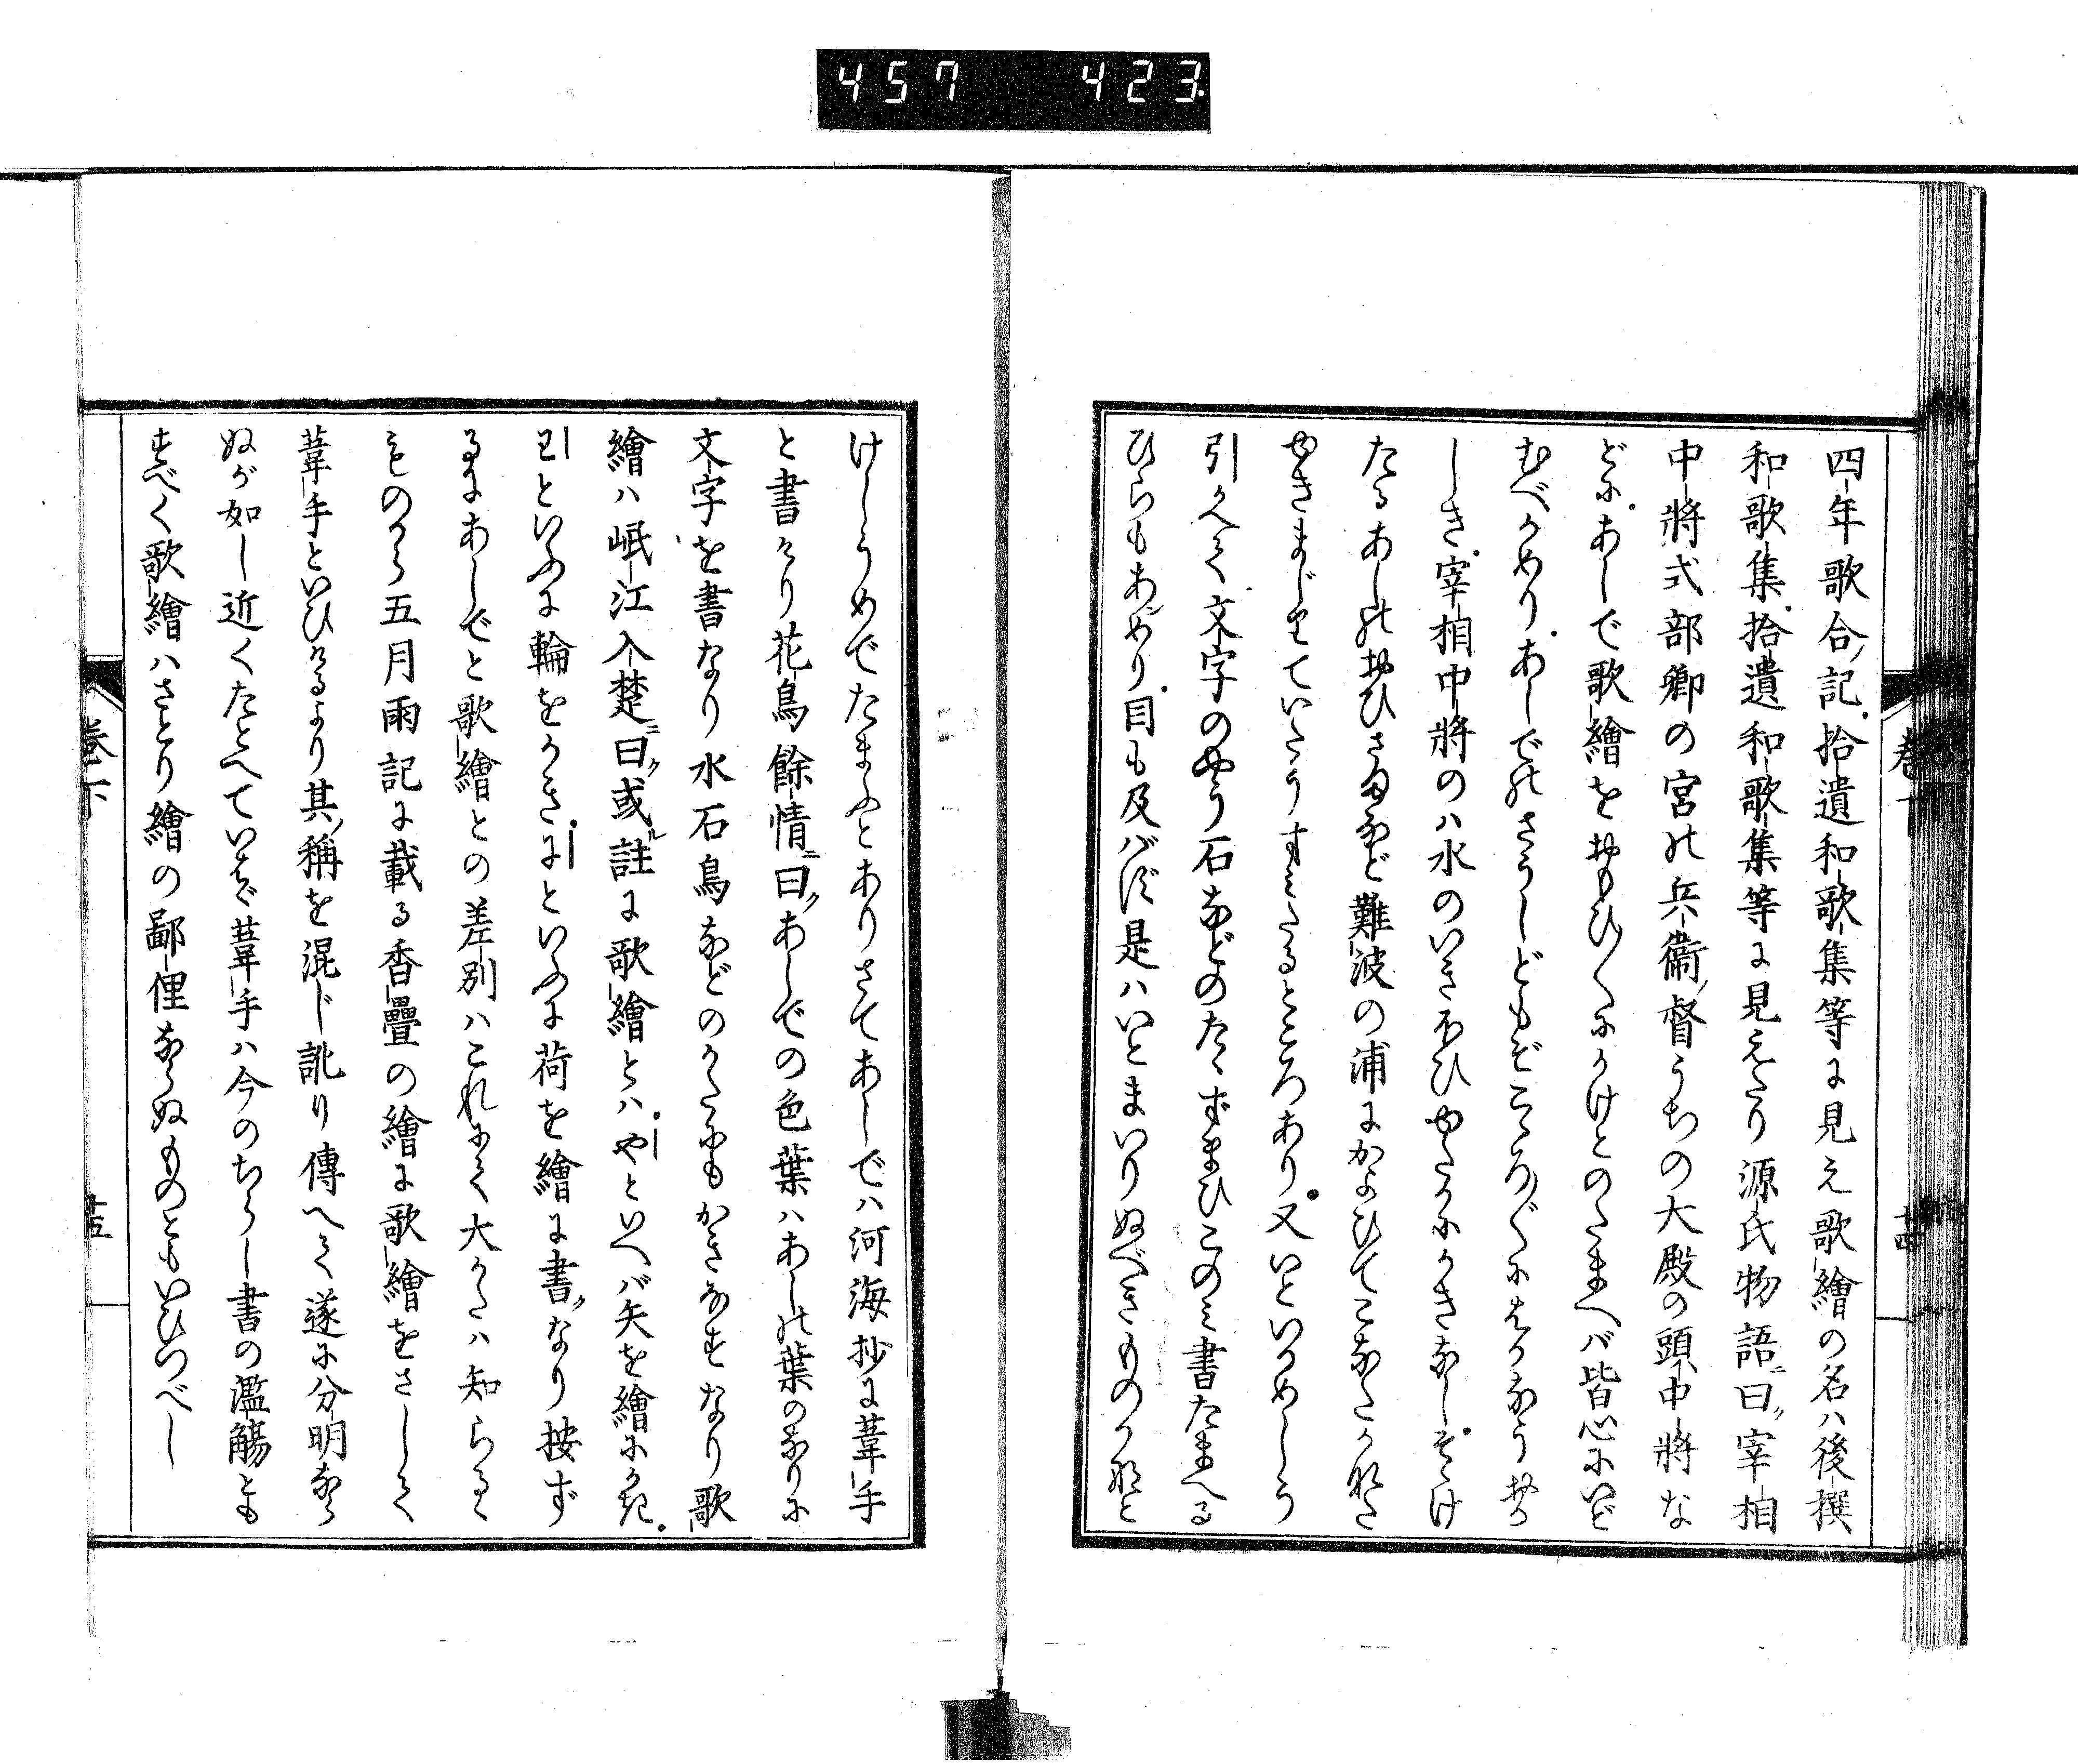 457 423
四年歌合ノ記拾遺和歌集等に見え歌繪の名ハ後撰
和歌集拾遺和歌集等に見えたり源氏物語ニ曰ク宰相
中將式部卿の宮の兵衞ノ督うちの大殿の頭中將な
どにあしで歌繪をおもひ〳〵にかけとのたまへバ皆心にいど
むべかめりあしでのさうしどもぞこゝろ〴〵にはかなうおか
しき宰相中將のハ水のいきほひゆたかにかきなしそゝけ
たるあしのおひさまなど難波の浦にかよひてこなたかなた
ゆきまじりていたうすみたるところあり又いといかめしう
引かへて文字のやう石などのたゝずまひこのミ書たまへる
ひらもあめり目も及バず是ハいとまいりぬべきものかなと
けしうめでたまふとありさてあしでハ河海抄に葦手
と書けり花鳥餘情ニ曰クあしでの色葉ハあしの葉のなりに
文字を書なり水石鳥などのかたにもかきなすなり歌
繪ハ岷江入楚ニ曰ク或ル註に歌繪とハやといへバ矢を繪にかき
わといふに輪をかきにといふに荷を繪に書クなり按ず
るにあしでと歌繪との差別ハこれにて大かたハ知らるゝ
ものから五月雨記に載る香疊の繪に歌繪をさして
葦手といひけるより其ノ稱を混じ訛り傳へて遂に分明なら
ぬが如し近くたとへていはゞ葦手ハ今のちらし書の濫觴とも
すべく歌繪ハさとり繪の鄙俚ならぬものともいひつべし
卷下
十五